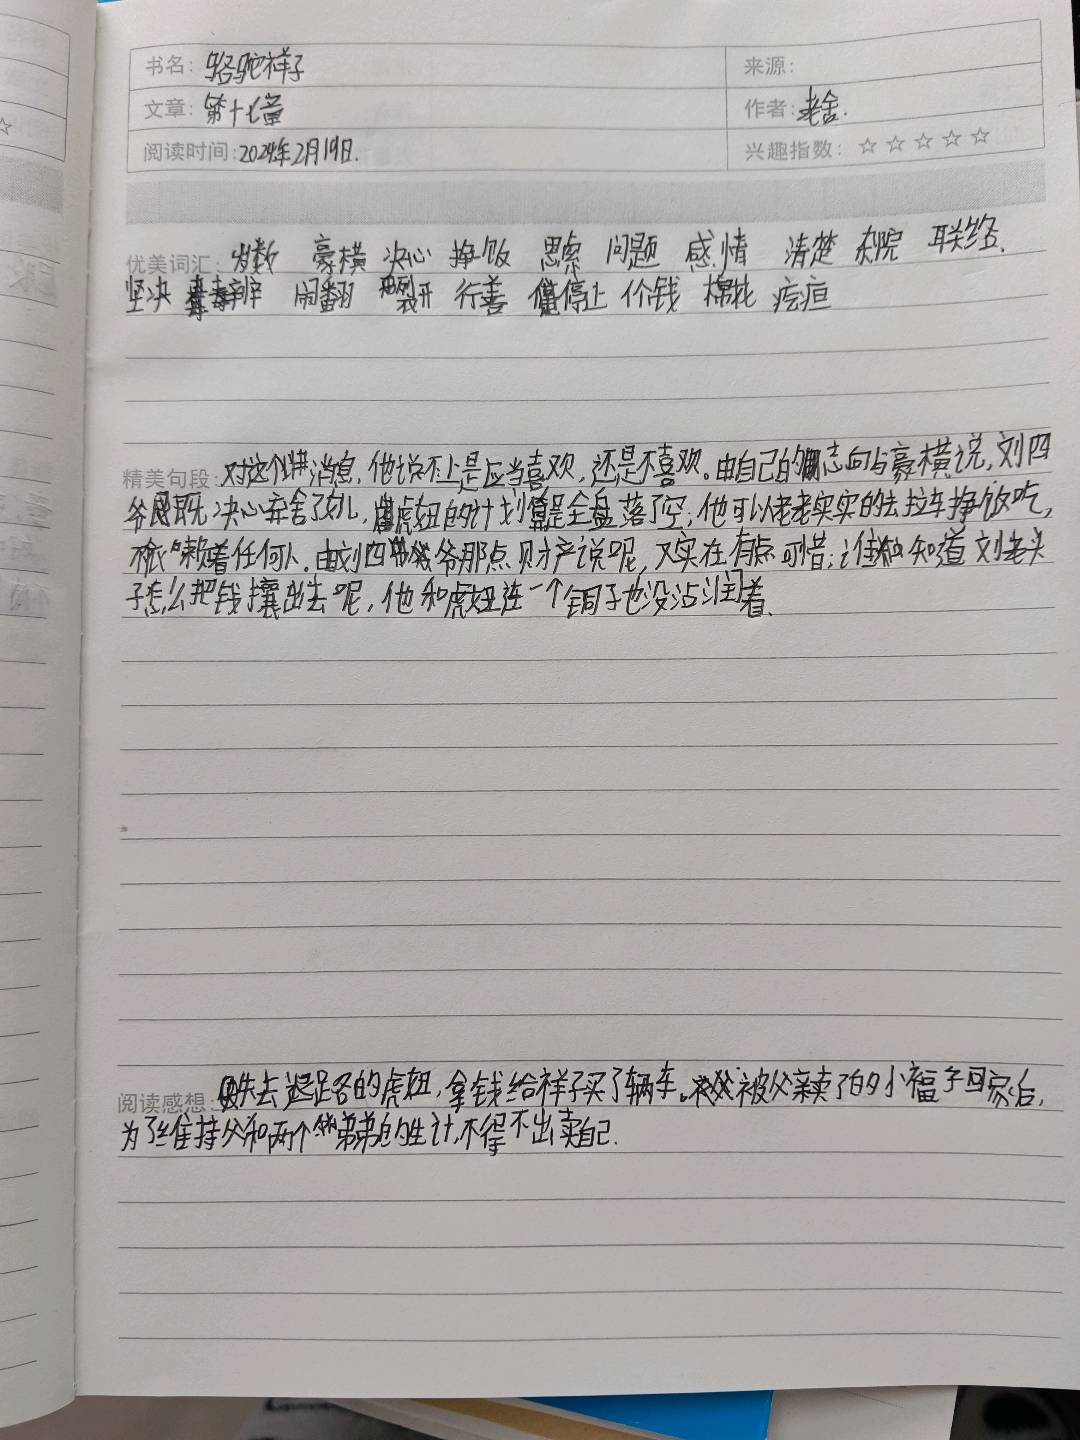 书名：骆驼祥子
来源：
文章：第十七章
作者：老舍.
阅读时间：2024年2月19日.
兴趣指数：☆☆☆☆☆
优美词汇： 岁数 豪横 决心 挣饭 思索 问题 感情 清楚 杂院 联络.
坚决 毒辣 闹翻 裂开 行善 停止 价钱 棉靴 疙疸
精美句段：对这个消息，他说不上是应当喜欢，还是不喜欢。由自己的志向与豪横说，刘四
爷既决心弃舍了女儿，虎妞的计划算是全盘落了空；他可以老老实实的去拉车挣饭吃，
不依赖着任何人。由刘四爷那点财产说呢，又实在有点可惜；谁知道刘老头
子怎么把钱攘出去呢，他和虎妞连一个铜子也没沾润着.
阅读感想： 失去退路的虎妞，拿钱给祥子买了辆车。被父亲卖了的小福子回家后，
为了维持父和两个弟弟的生计，不得不出卖自己.